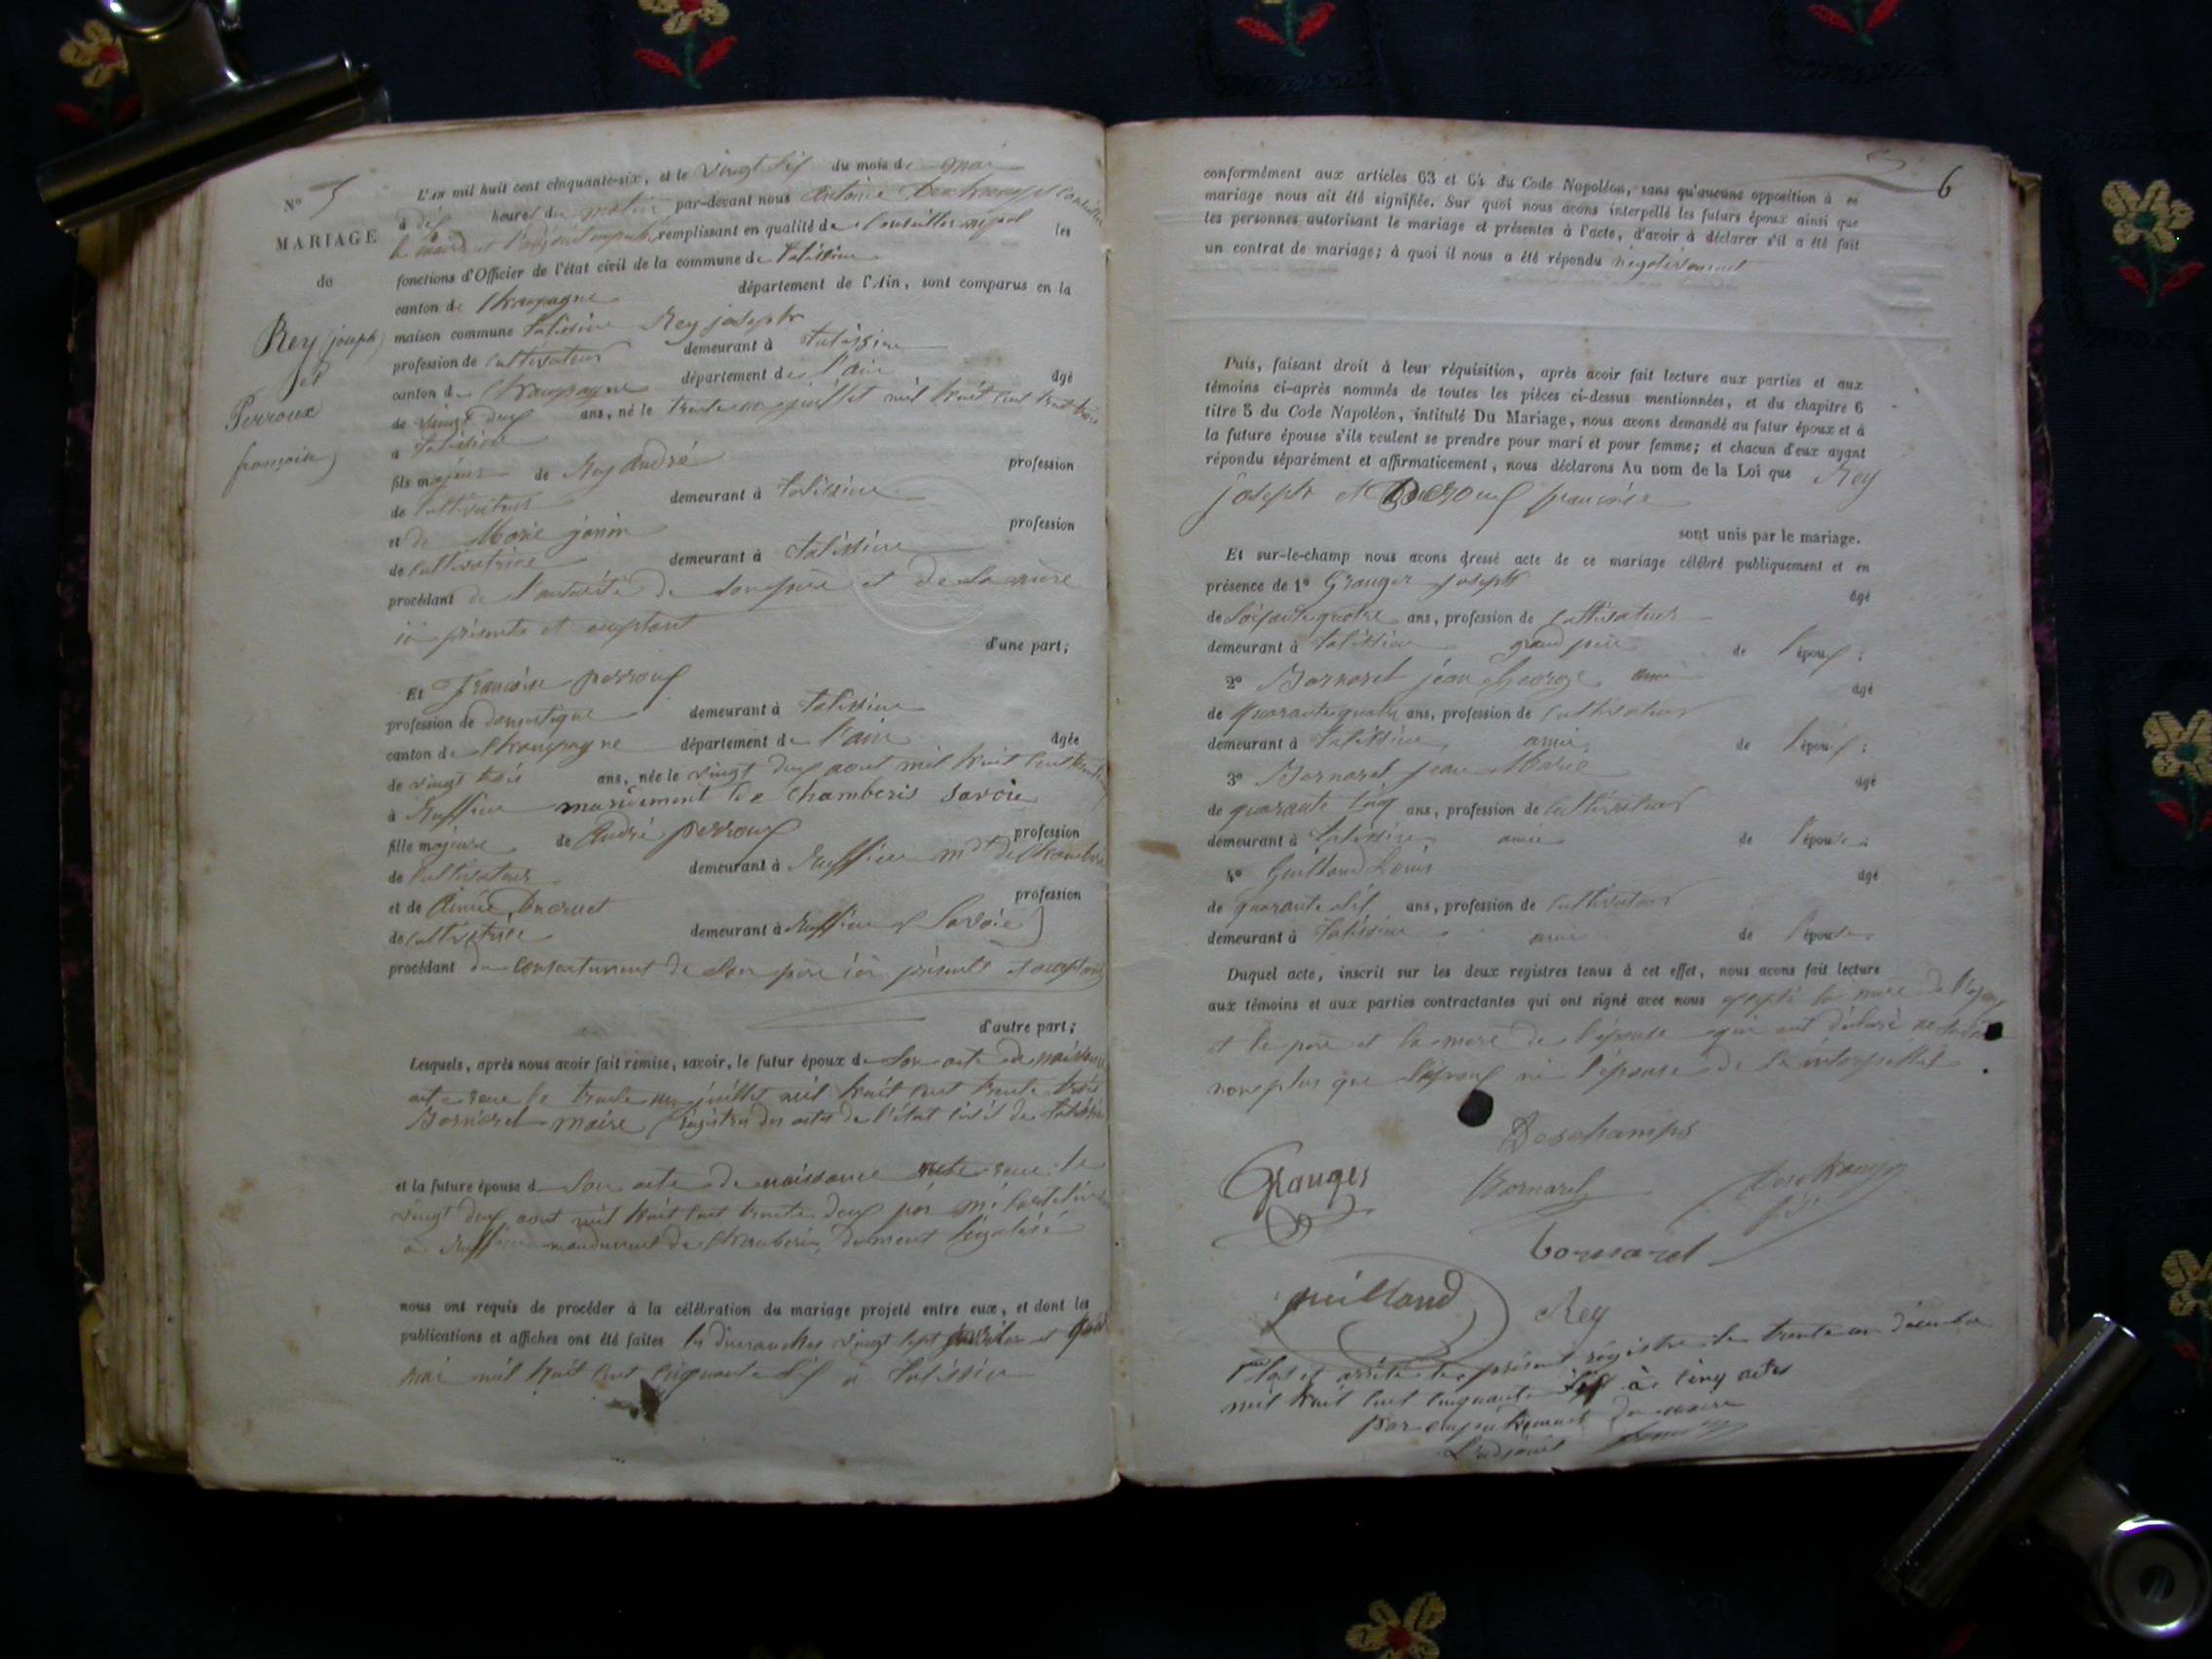 N° 5
MARIAGE
de
Rey (joseph)
et
Perroux
françoise
L'AN mil huit cent cinquante-six, et le vingt six du mois de mai
à dix heures du matin par-devant nous Antoine Deschamps Conseiller
le maire et l'adjoint empêchés remplissant en qualité de Conseiller municipal les
fonctions d'Officier de l'état civil de la commune de talissieu
canton de Champagne département de l'Ain, sont comparus en la
maison commune talissieu Rey joseph
profession de cultivateur demeurant à talissieu
canton de Champagne département de l'ain âgé
de vingt deux ans, né le trente un juillet mil huit cent trente trois
à talissieu
fils majeur de Rey André profession
de cultivateur demeurant à talissieu
et de Marie janin profession
de cultivatrice demeurant à talissieu
procédant de l'autorité de son père et de sa mère
ici présents et acceptant
d'une part;
Et françoise perroux
profession de domestique demeurant à talissieu
canton de Champagne département de l'ain âgée
de vingt trois ans, née le vingt deux aout mil huit cent trente deux
à Ruffieu mandement de Chamberis Savoie
fille majeure de André perroux profession
de cultivateur demeurant à Ruffieu mdt de Chamberi
et de Aimée profession
de cultivatrice demeurant à Ruffieu (Savoie)
procédant du consentement de son père ici présents et acceptant
d'autre part;
Lesquels, après nous avoir fait remise, savoir, le futur époux de son acte de naissance
acte reçu le trente un juillet mil huit cent trente trois
Bornarel maire (registres des actes de l'état civil de talissieu
et la future épouse de son acte de naissance acte reçu le
vingt deux aout mil huit cent trente deux par mr
à Ruffieu mandement de Chamberi, dument légalisé
nous ont requis de procéder à la célébration du mariage projeté entre eux, et dont les
publications et affiches ont été faites les dimanches vingt sept avril et
mai mil huit cent cinquante six à talissieu
6
conformément aux articles 63 et 64 du Code Napoléon, sans qu'aucune opposition à ce
mariage nous ait été signifiée. Sur quoi nous avons interpellé les futurs époux ainsi que
les personnes autorisant le mariage et présentes à l'acte, d'avoir à déclarer s'il a été fait
un contrat de mariage; à quoi il nous a été répondu négativement
Puis, faisant droit à leur réquisition, après avoir fait lecture aux parties et aux
témoins ci-après nommés de toutes les pièces ci-dessus mentionnées, et du chapitre 6
titre 5 du Code Napoléon, intitulé Du Mariage, nous avons demandé au futur époux et à
la future épouse s'ils veulent se prendre pour mari et pour femme; et chacun d'eux ayant
répondu séparément et affirmativement, nous déclarons Au nom de la Loi que Rey
joseph et perroux françoise
sont unis par le mariage.
Et sur-le-champ nous avons dressé acte de ce mariage célébré publiquement et en
présence de 1° Granger joseph âgé
de soixante quatre ans, profession de cultivateur
demeurant à talissieu grand père de l'époux;
2° Bornarel jean George ami âgé
de quarante quatre ans, profession de cultivateur
demeurant à talissieu, ami, de l'époux;
3° Bornarel jean Marie âgé
de quarante cinq ans, profession de cultivateur
demeurant à talissieu ami de l'épouse;
4° Guilland Louis âgé
de quarante six ans, profession de cultivateur
demeurant à talissieu ami de l'épouse.
Duquel acte, inscrit sur les deux registres tenus à cet effet, nous avons fait lecture
aux témoins et aux parties contractantes qui ont signé avec nous excepté la mère de l'époux
et le père et la mère de l'épouse qui ont déclaré ne
non plus que ni l'épouse de ce interpellés
Deschamps
Granger Bornarel Deschamps
bornarel
guilland Rey
Clos et arrêté le présent registre le trente un décembre
mil huit cent cinquante six à cinq actes
par empêchement du maire
L'adjoint